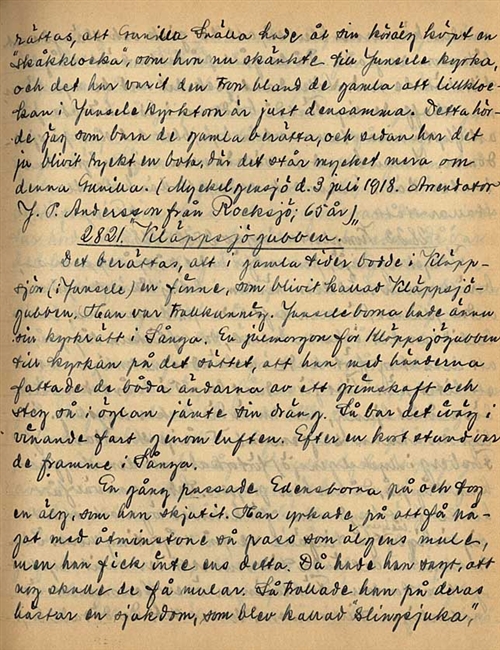 rättas, att Gunilla Snälla hade åt sin körälg köpt en
"skåkklocka", som hon nu skänkte till Junsele kyrka,
och det har varit den tron bland de gamla att lillkloc-
kan i Junsele kyrktorn är just densamma. Detta hör-
de jag som barn de gamla berätta, och sedan har det
ju blivit tryckt en bok, där det står mycket mera om
denna Gunilla. (Myckelgensjö d. 3 juli 1918. Arrendator
J. P. Andersson från Rocksjö; 65 år)
2821. "Kläppsjögubben."
Det berättas, att i gamla tider bodde i Kläpp-
sjön (i Junsele) en finne, som blivit kallad Kläppsjö-
gubben. Han var trollkunnig. Junseleborna hade ännu
sin kyrkrätt i Sånga. En julmorgon for Kläppsjögubben
till kyrkan på det sättet, att han med händerna
fattade de båda ändarna av ett grimskaft och
steg så i öglan jämte sin dräng. Så bar det iväg i
vinande fart genom luften. Efter en kort stund var
de framme i Sånga.
En gång passade Edensborna på och tog
en älg, som han skjutit. Han yrkade på att få nå-
got med åtminstone så pass som älgens mule,
men han fick inte ens detta. Då hade han sagt, att
nog skulle de få mular. Så trollade han på deras
hästar en sjukdom, som blev kallad "slingsjuka",